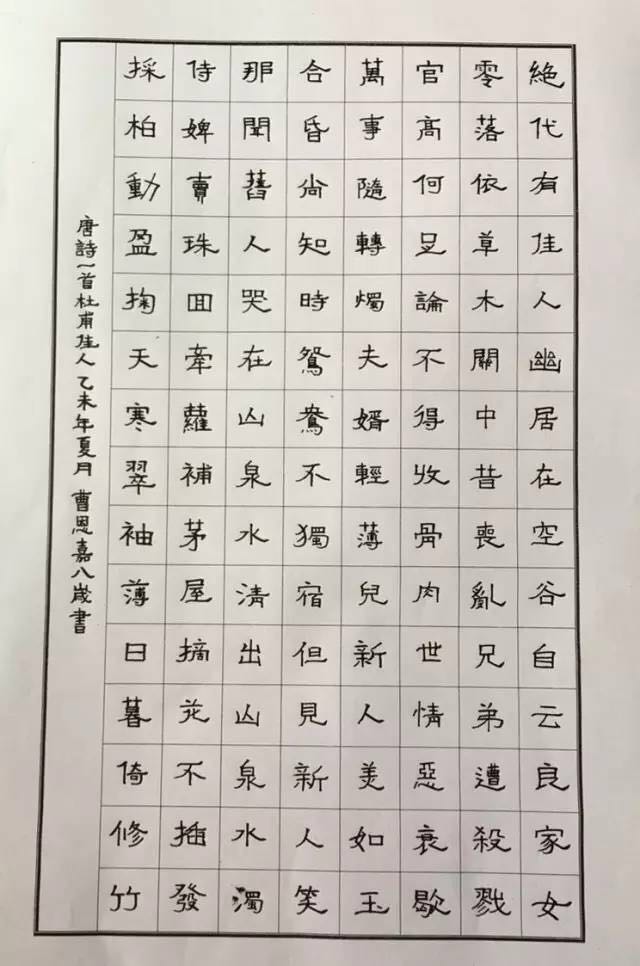 絕代有佳人幽居在空谷自云良家女
零落依草木關中昔喪亂兄弟遭殺戮
官高何足論不得收骨肉世情惡衰歇
萬事隨轉燭夫婿輕薄兒新人美如玉
合昏尚知時鴛鴦不獨宿但見新人笑
那聞舊人哭在山泉水清出山泉水濁
侍婢賣珠回牽蘿補茅屋摘花不插發
採柏動盈掬天寒翠袖薄日暮倚修竹
唐詩一首杜甫佳人乙未年夏月 曹恩嘉八歲書